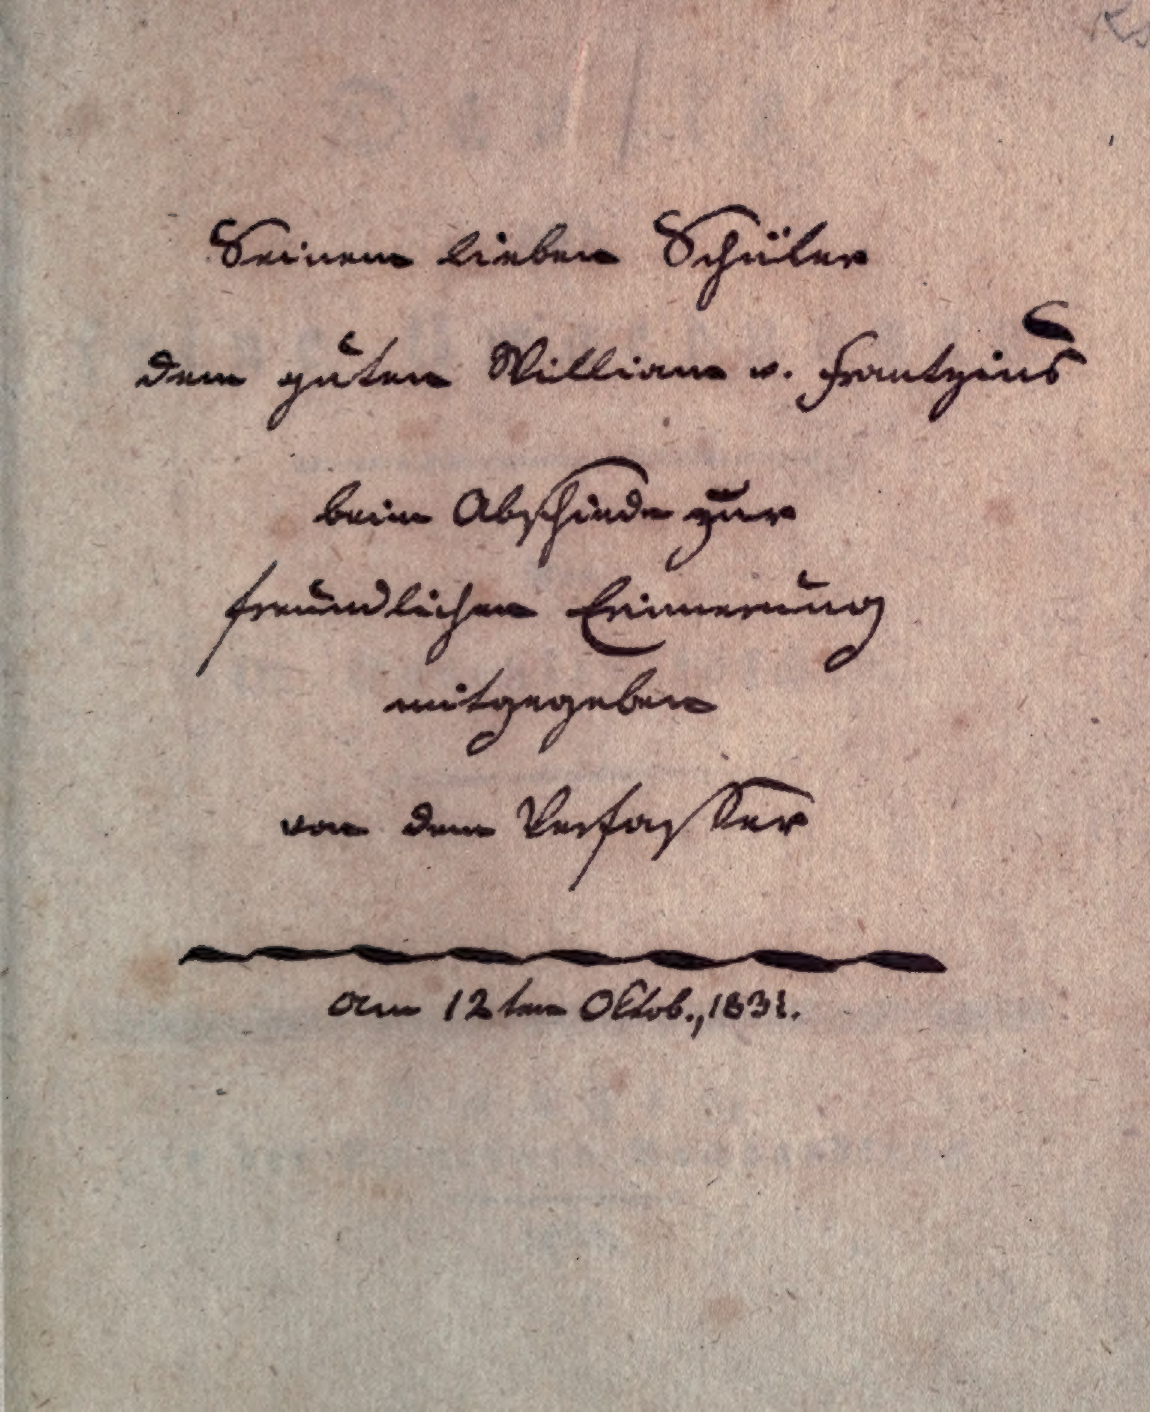 Seinem lieben Schüler
dem guten William v. Frantzius
beim Abschiede zur
freundlichen Erinnerung
mitgegeben
von dem Verfasser
am 12ten Oktob., 1831.